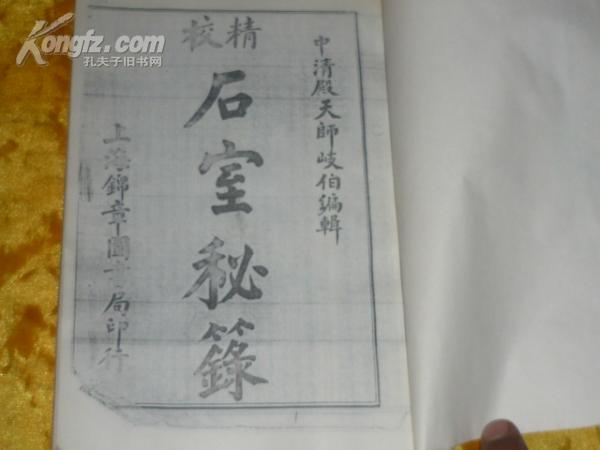 Kongfz.com
孔夫子旧书网
中清殿天師岐伯編輯
精校
石室秘籙
上海錦章圖書局印行